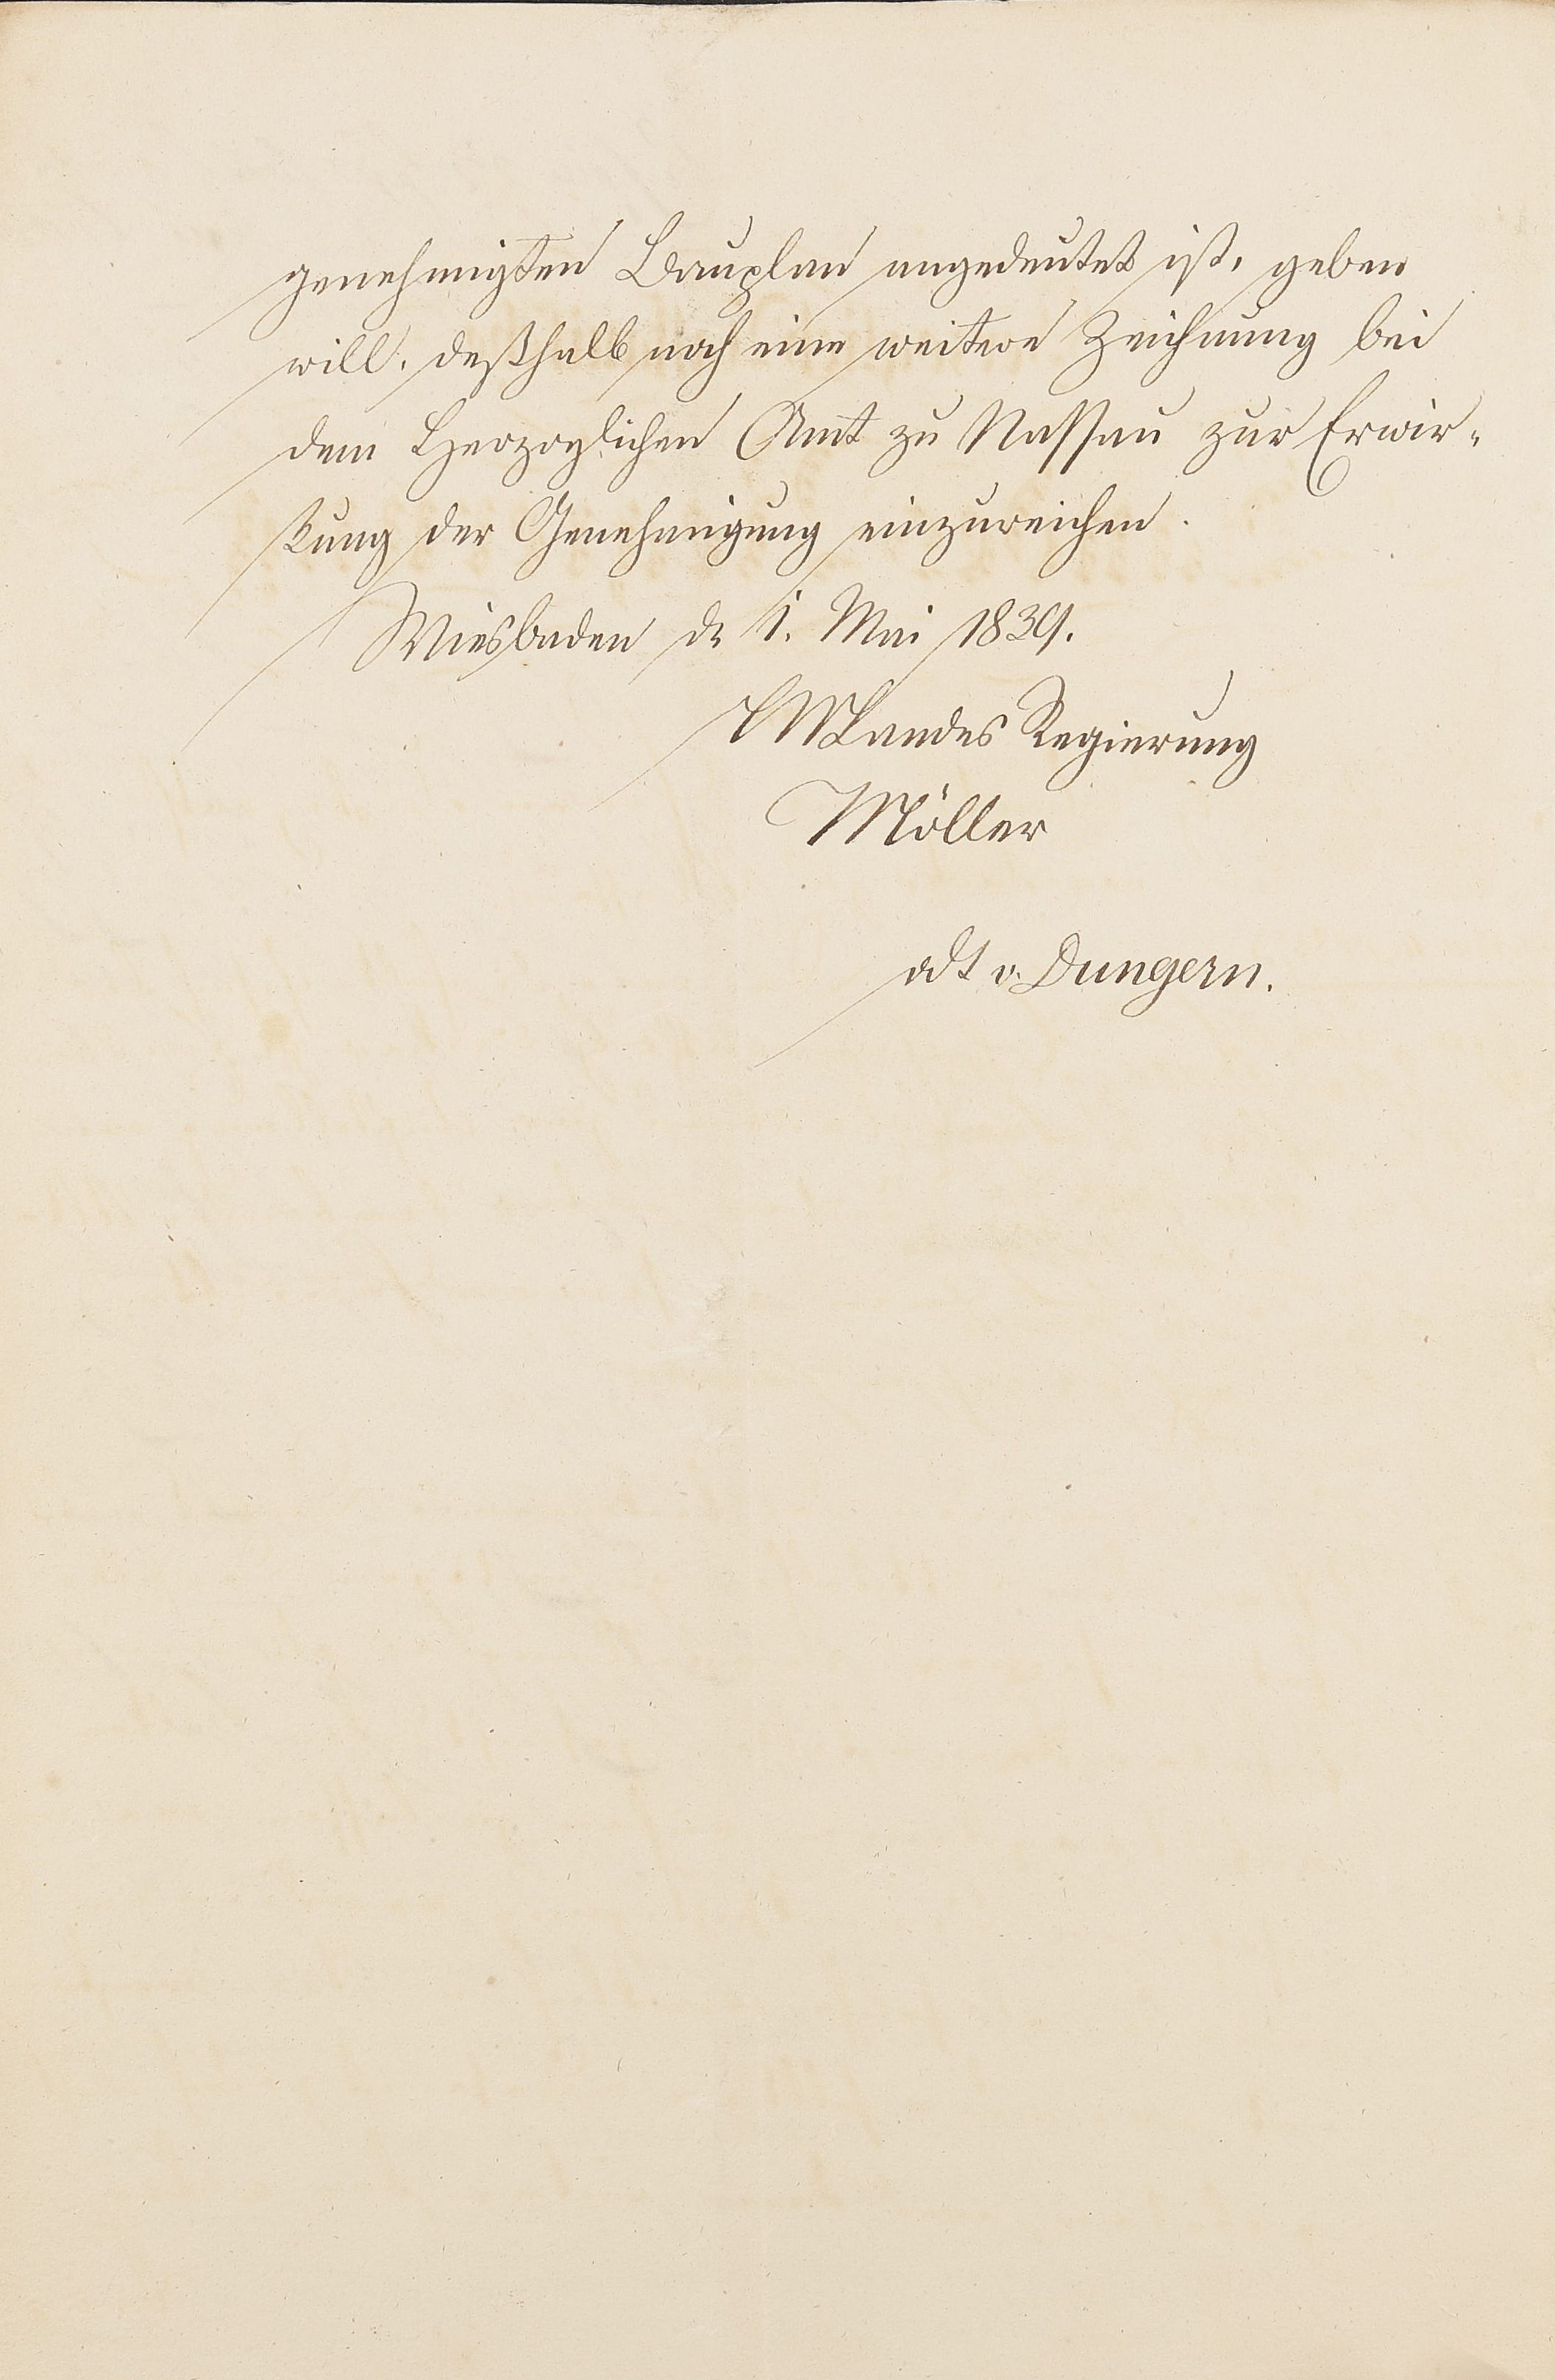 genehmigten Bauplan angedeutet ist, geben
will, deßhalb noch eine weitere Zeichnung bei
dem Herzoglichen Amt zu Nassau zur Erwir-
kung der Genehmigung einzureichen.
Wiesbaden d. 1. Mai 1839.
Landes Regierung
Möller
vdt v. Dungern.